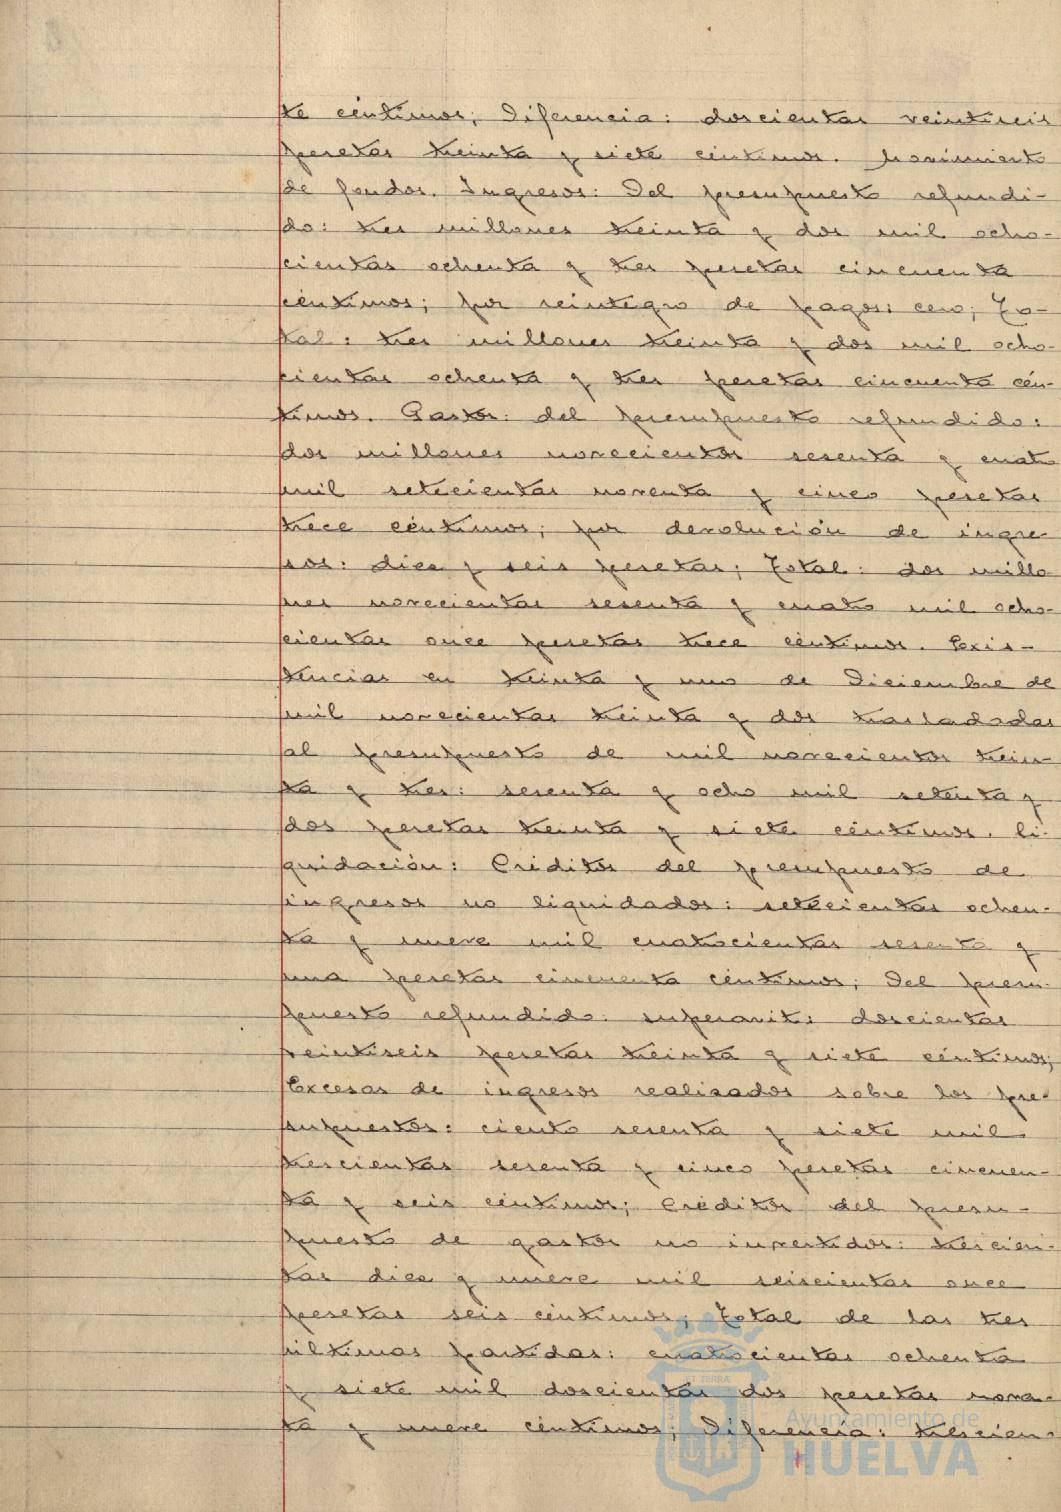 te céntimos; Diferencia: doscientas veintiseis
pesetas treinta y siete céntimos. Movimiento
de fondos. Ingresos: Del presupuesto refundi-
do: tres millones treinta y dos mil ocho-
cientas ochenta y tres pesetas cincuenta
céntimos; por reintegro de pagos: cero; To-
tal: tres millones treinta y dos mil ocho-
cientas ochenta y tres pesetas cincuenta cén-
timos. Gastos: del presupuesto refundido:
dos millones novecientas sesenta y cuatro
mil setecientas noventa y cinco pesetas
trece céntimos; por devolución de ingre-
sos: diez y seis pesetas; Total: dos millo
nes novecientas sesenta y cuatro mil ocho-
cientas once pesetas trece céntimos. Exis-
tencias en treinta y uno de Diciembre de
mil novecientos treinta y dos trasladadas
al presupuesto de mil novecientos trein-
ta y tres: sesenta y ocho mil setenta y
dos pesetas treinta y siete céntimos. Li-
quidación: Créditos del presupuesto de
ingresos no liquidados: setecientas ochen-
ta y nueve mil cuatrocientas sesenta y
una pesetas cincuenta céntimos; Del presu-
puesto refundido: superavit: doscientas
veintiseis pesetas treinta y siete céntimos;
Excesos de ingresos realizados sobre los pre-
supuestos: ciento sesenta y siete mil
trescientas sesenta y cinco pesetas cincuen-
ta y seis céntimos; Créditos del presu-
puesto de gastos no invertidos: trescien-
tas diez y nueve mil seiscientas once
pesetas seis céntimos; Total de las tres
últimas partidas: cuatrocientas ochenta
y siete mil doscientas dos pesetas noven-
ta y nueve céntimos; Diferencia: trescien-
Ayuntamiento de
HUELVA